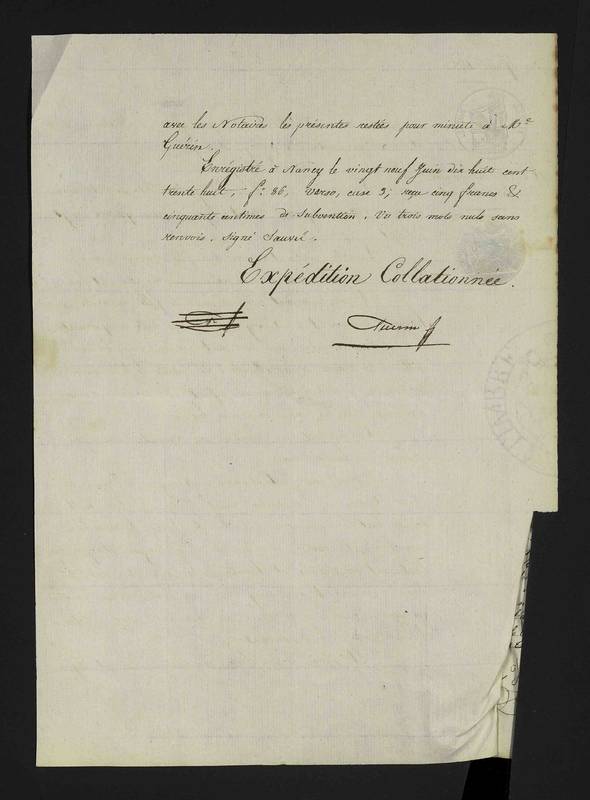 avec les Notaires les présentes restées pour minute à Me
Guérin.
Enregistré à Nancy le vingt neuf Juin dix huit cent
trente huit, fo. 86, verso, case 3; reçu cinq francs &
cinquante centimes de Subvention. Vu trois mots nuls sans
renvois. Signé Sauvel.
Expédition Collationnée.
Guerin
TIMBRE